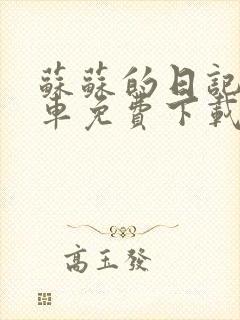 蘇蘇的日記
車免費下載
高玉發